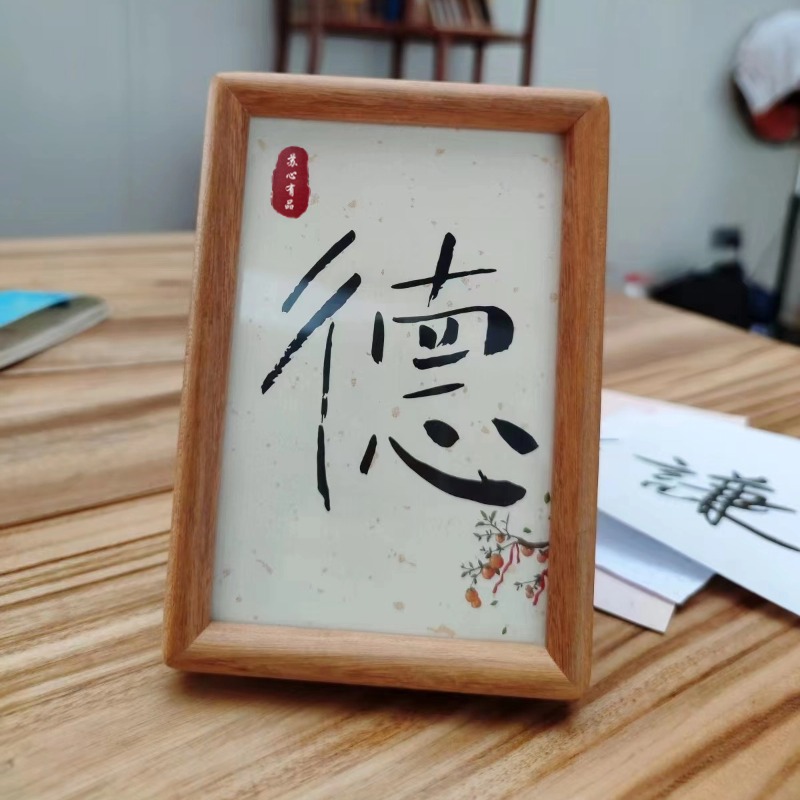 苏心有品
德
謙